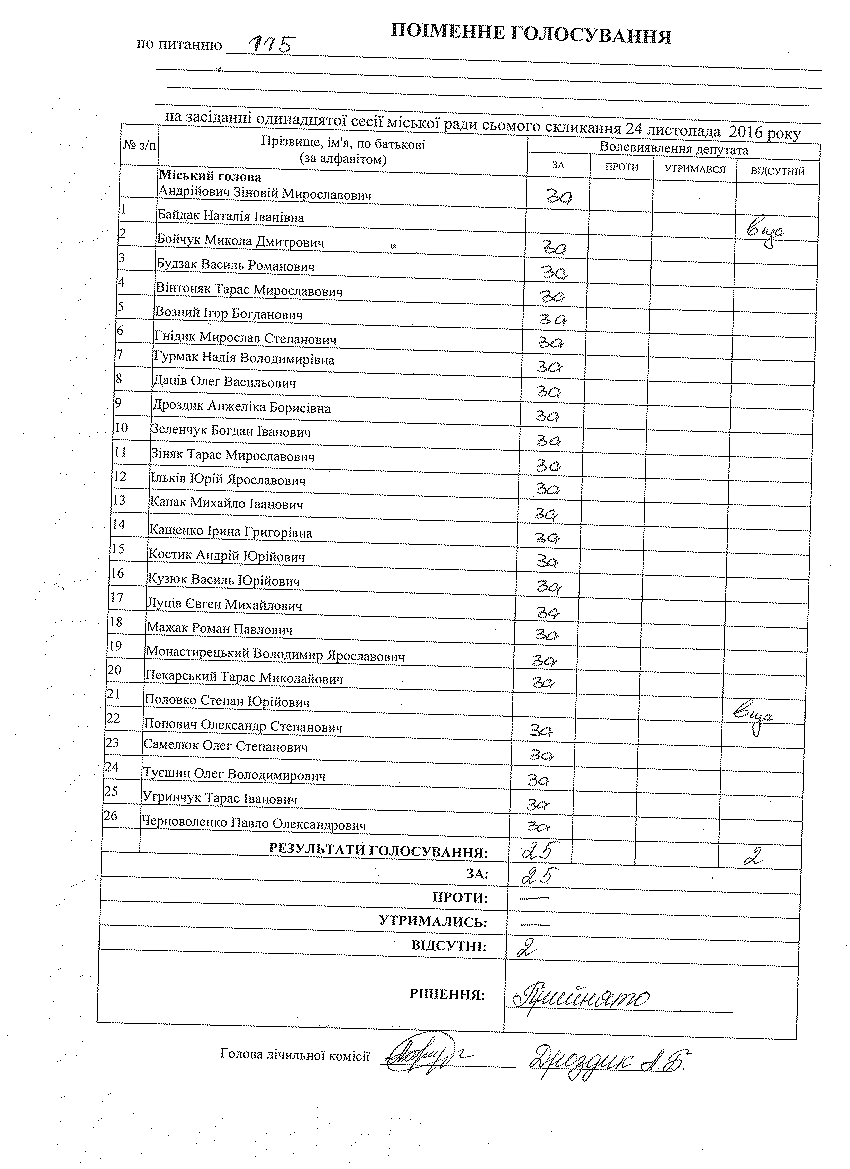 ПОІМЕННЕ ГОЛОСУВАННЯ
по питанню 115
на засіданні одинадцятої сесії міської ради сьомого скликання 24 листопада 2016 року
№ з/п Прізвище, ім'я, по батькові (за алфавітом) Волевиявлення депутата
ЗА ПРОТИ УТРИМАВСЯ ВІДСУТНІЙ
Міський голова
Андрійович Зіновій Мирославович за
1 Байдак Наталія Іванівна
2 Бойчук Микола Дмитрович за
3 Будзак Василь Романович за
4 Вінтоняк Тарас Мирославович за
5 Возний Ігор Богданович за
6 Гнідик Мирослав Степанович за
7 Гурмак Надія Володимирівна за
8 Даців Олег Васильович за
9 Дроздик Анжеліка Борисівна за
10 Зеленчук Богдан Іванович за
11 Зіняк Тарас Мирославович за
12 Ільків Юрій Ярославович за
13 Капак Михайло Іванович за
14 Кащенко Ірина Григорівна за
15 Костик Андрій Юрійович за
16 Кузюк Василь Юрійович за
17 Луців Євген Михайлович за
18 Мажак Роман Павлович за
19 Монастирецький Володимир Ярославович за
20 Пекарський Тарас Миколайович за
21 Половко Степан Юрійович
22 Попович Олександр Степанович за
23 Самелюк Олег Степанович за
24 Туєшин Олег Володимирович за
25 Угринчук Тарас Іванович за
26 Черноволенко Павло Олександрович за
РЕЗУЛЬТАТИ ГОЛОСУВАННЯ: 25 2
ЗА: 25
ПРОТИ: —
УТРИМАЛИСЬ: —
ВІДСУТНІ: 2
РІШЕННЯ: Прийнято
Голова лічильної комісії Дроздик А.Б.